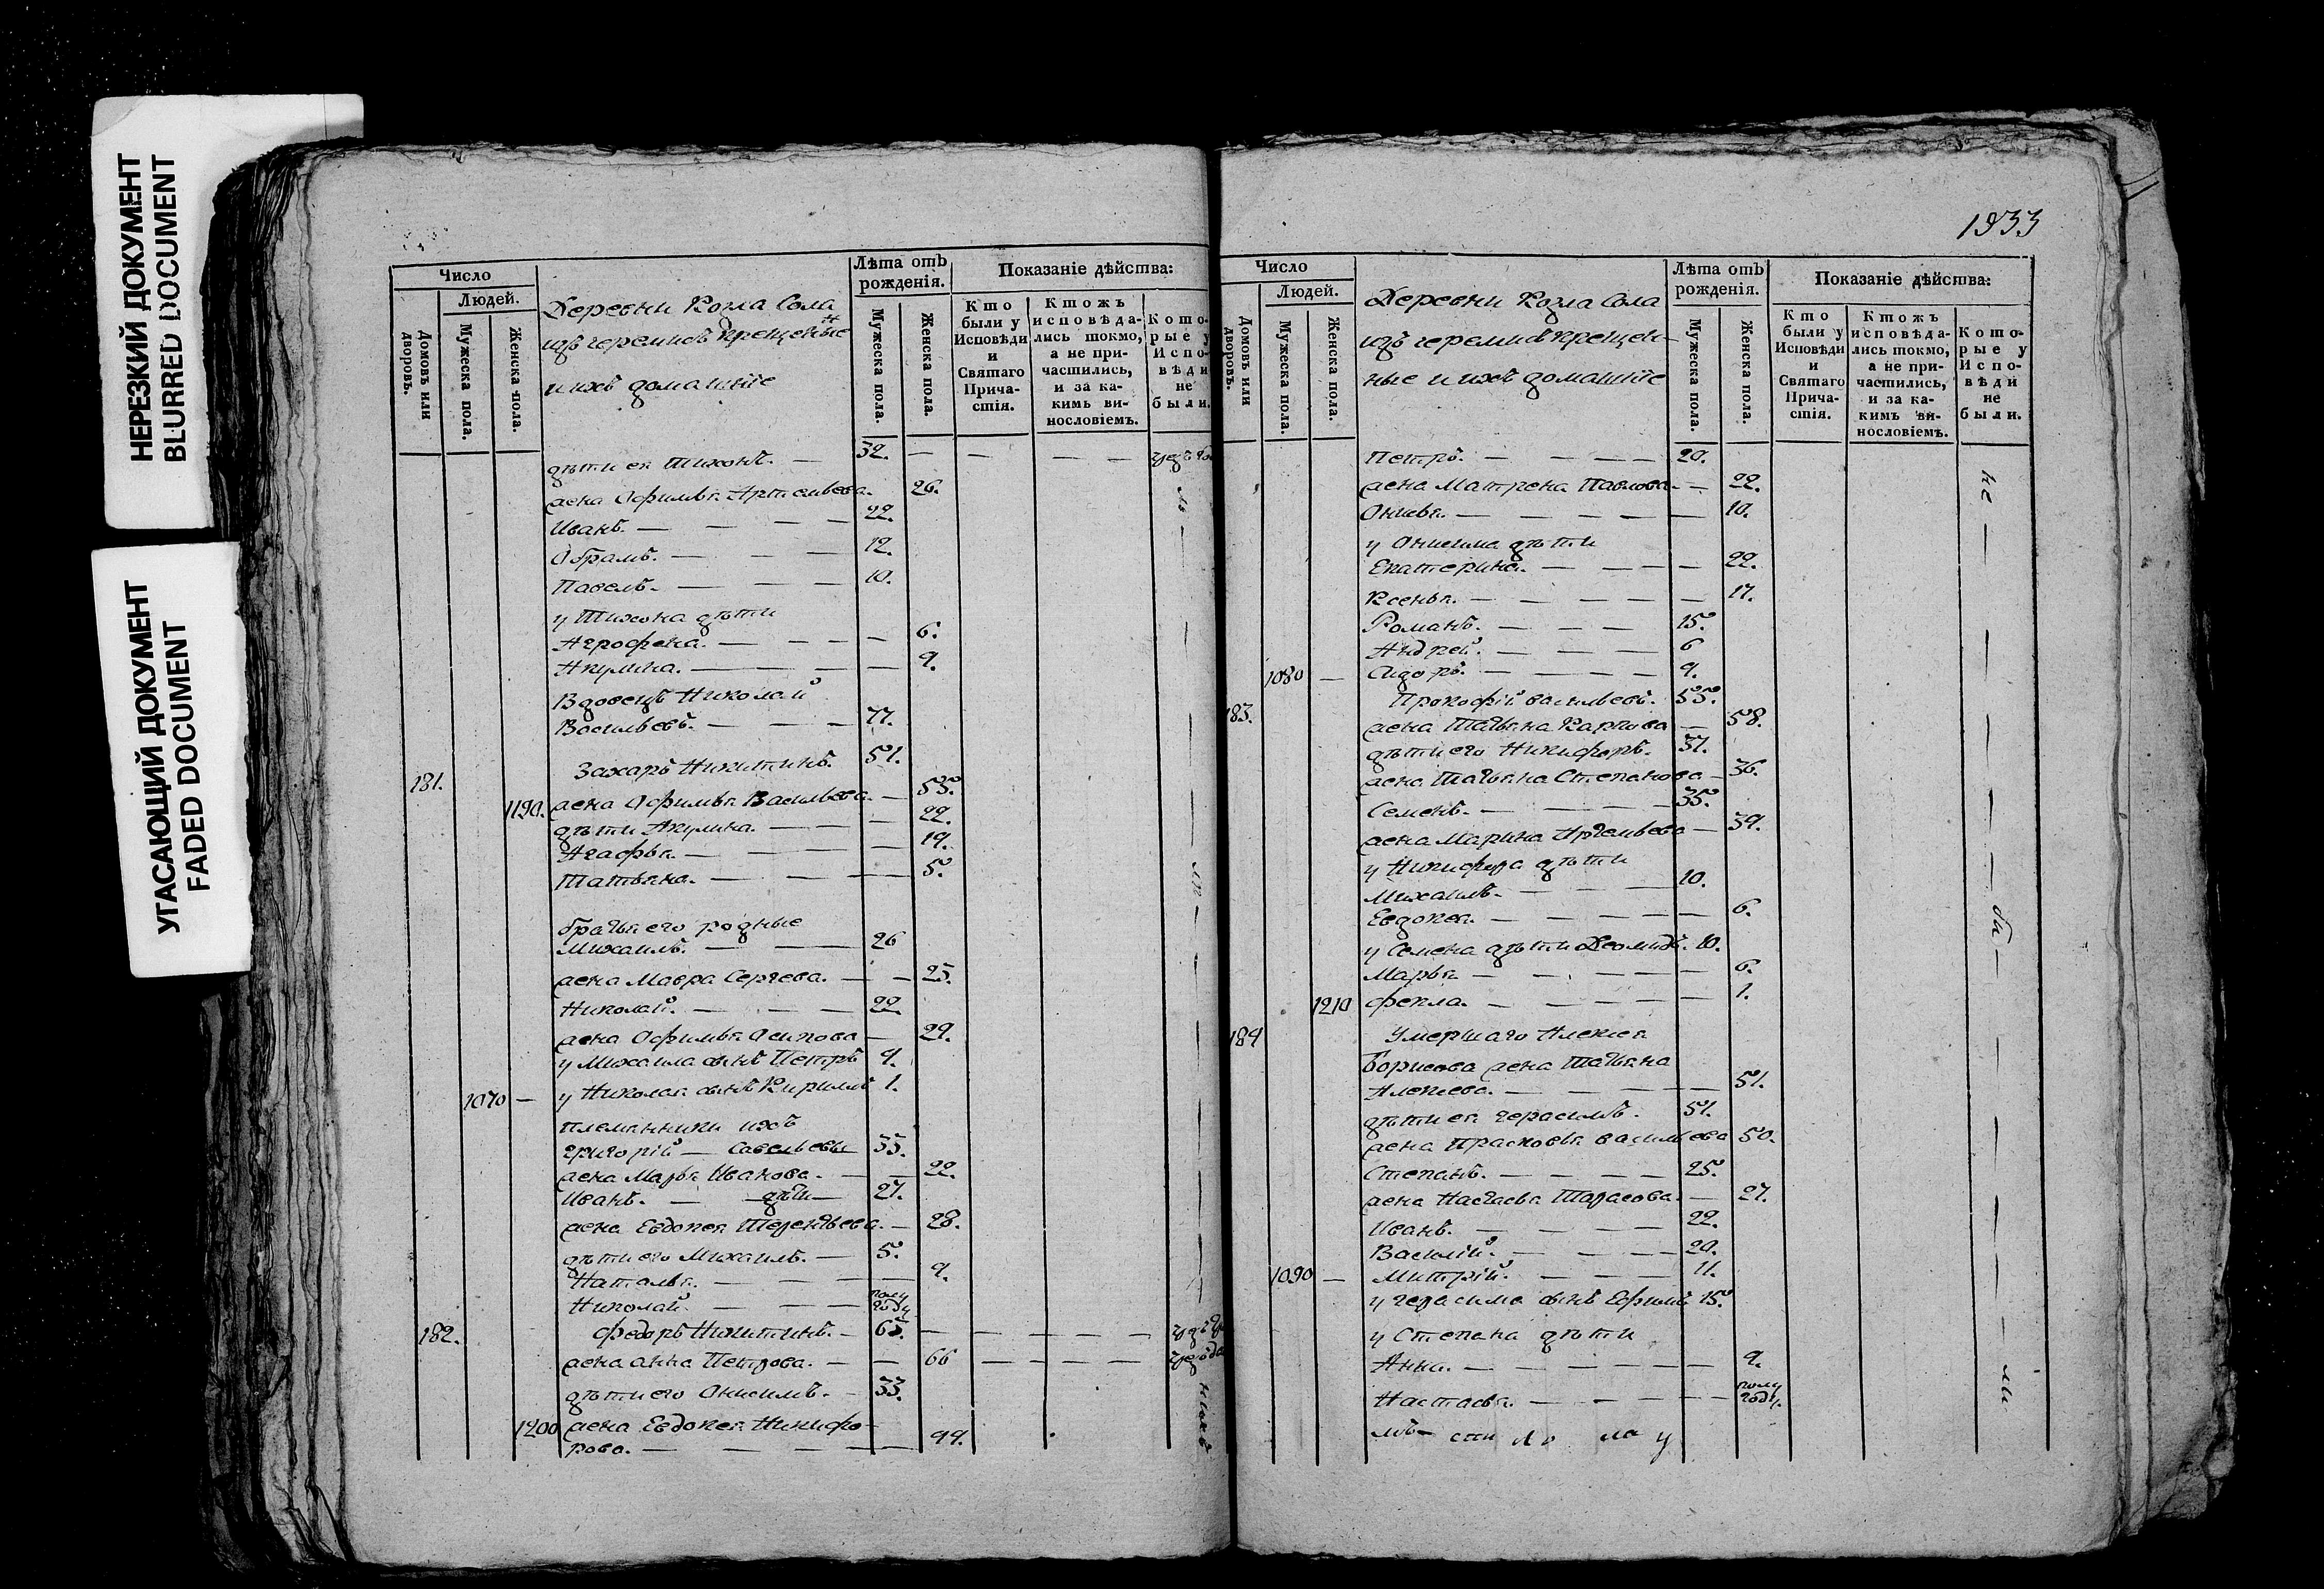 НЕРЕЗКИЙ ДОКУМЕНТ
BLURRED DOCUMENT
УГАСАЮЩИЙ ДОКУМЕНТ
FADED DOCUMENT
Число
Людей.
Домовъ или дворовъ.
Мужеска пола.
Женска пола.
Деревни Козла Сола
изъ черемисъ крещеные
и ихъ домашние
Лѣта отъ рожденія.
Мужеска пола.
Женска пола.
Показаніе дѣйства:
Кто были у Исповѣди и Святаго Прича-стія.
Ктожъ исповѣда-лись токмо, а не при-частились, и за ка-кимъ ви-нословіемъ.
Кото-рые у Испо-вѣди не были.
дѣти ея Тихонъ. — 32.
жена Офимья Артемьева. 26.
Иванъ. — 22.
Обрамъ. — 12.
Павелъ. — 10.
у Тихона дѣти
Агрофена. — 6.
Акулина. — 9.
Вдовецъ Николай
Васильевъ. — 77.
181. Захаръ Никитинъ. 51.
1190. жена Офимья Васильева. — 53.
дѣти Акулина. — 22.
Агафья. — 19.
Татьяна. — 5.
братья его родные
Михаилъ. — 26
жена Мавра Сергеева. — 25.
Николай. — 22.
жена Офимья Осипова — 29.
у Михаила сынъ Петръ 9.
1070 — у Николая сынъ Кирилъ 1.
племянники ихъ
григорій — Савельевы 33.
жена Марья Иванова. — 22.
Иванъ. — дѣти — 27.
жена Евдокея Терентьева. — 28.
дѣти его Михаилъ. — 5.
Наталья. — 9.
Николай. — полу году
182. федоръ Никитинъ. — 65.
жена анна Петрова. — 66
дѣти его Онисимъ. — 33.
1200 жена Евдокея Никифо-
рова. — 44.
1833
Число
Людей.
Домовъ или дворовъ.
Мужеска пола.
Женска пола.
Деревни Козла Сола
изъ черемисъ крещен-
ные и ихъ домашние
Лѣта отъ рожденія.
Мужеска пола.
Женска пола.
Показаніе дѣйства:
Кто были у Исповѣди и Святаго Прича-стія.
Ктожъ исповѣда-лись токмо, а не при-частились, и за ка-кимъ ви-нословіемъ.
Кото-рые у Испо-вѣди не были.
Петръ. — 20.
жена Матрена Павлова. — 22.
— 10.
у Онисима дѣти
Екатерина. — 22.
Ксенья. — 17.
Романъ. — 15.
Андрей. — 6
1080 — Сидоръ. — 9.
183. Прокофій васильевъ. 55.
жена Татьяна Карпова — 58.
дѣти его Никифоръ. 37.
жена Татьяна Степанова — 36.
Семенъ. — 35.
жена Марина Артемьева — 39.
у Никифора дѣти
Михаилъ. — 10.
Евдокея. — 6.
у Семена дѣти Деомидъ. 10.
Марья — 6.
1210 фекла. — 1.
184 Умершаго Алексея
Борисова жена Татьяна
Алексеева. — 51.
дѣти ея герасимъ. 51.
жена Прасковья васильева 50.
Степанъ. — 25.
жена Настасья Тарасова. — 27.
Иванъ. — 22.
Василій. — 20.
1090 — Митрій. — 11.
у герасима сынъ Ефимъ 15.
у Степана дѣти
Анна. — 9.
Настасья. — полу году.
не — бы — ли